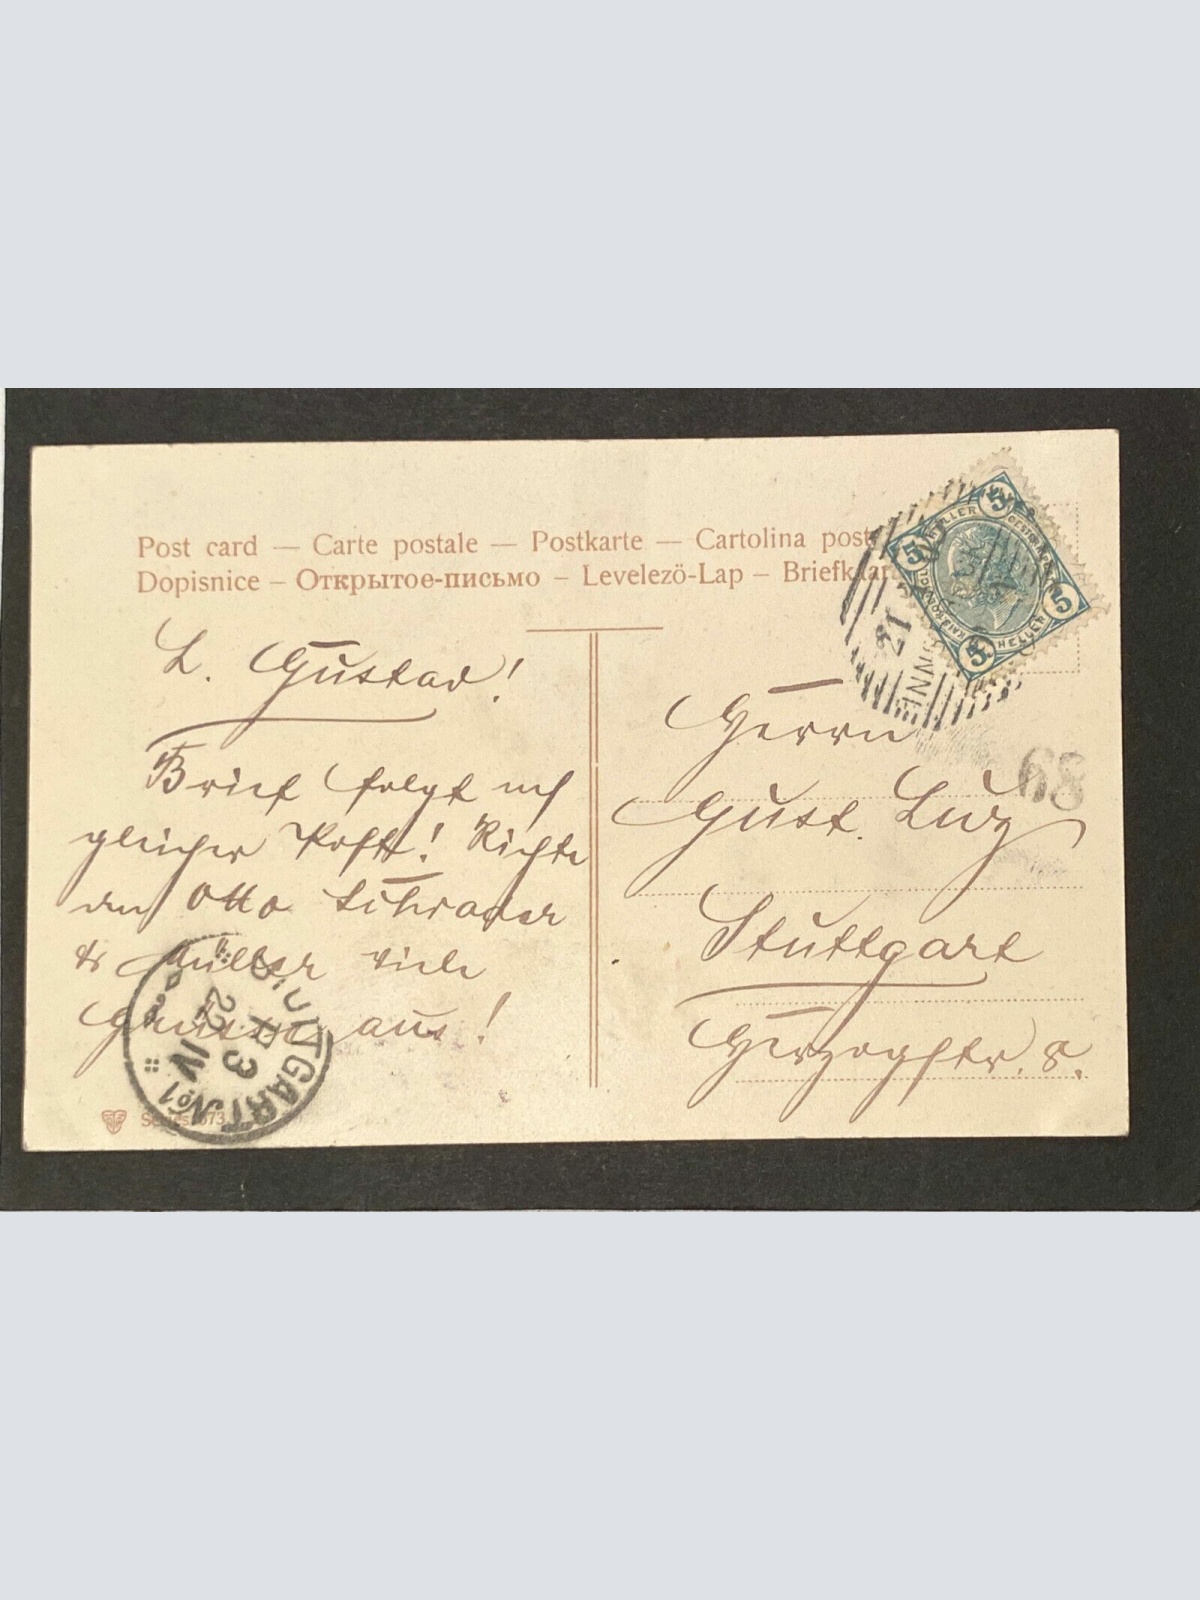 Post card — Carte postale — Postkarte — Cartolina post
Dopisnice – Открытое-письмо – Levelezö-Lap – Briefkaar
L. Gustav!
Brief folgt mit
gleicher Post! Richte
an Otto Schrader
& Müller viele
Grüsse aus!
Herrn
Gust. Luz
Stuttgart
Herzogstr. 8.
5 HELLER 5
5 HELLER 5
68
STUTTGART No 1
22 IV
3
Series 673